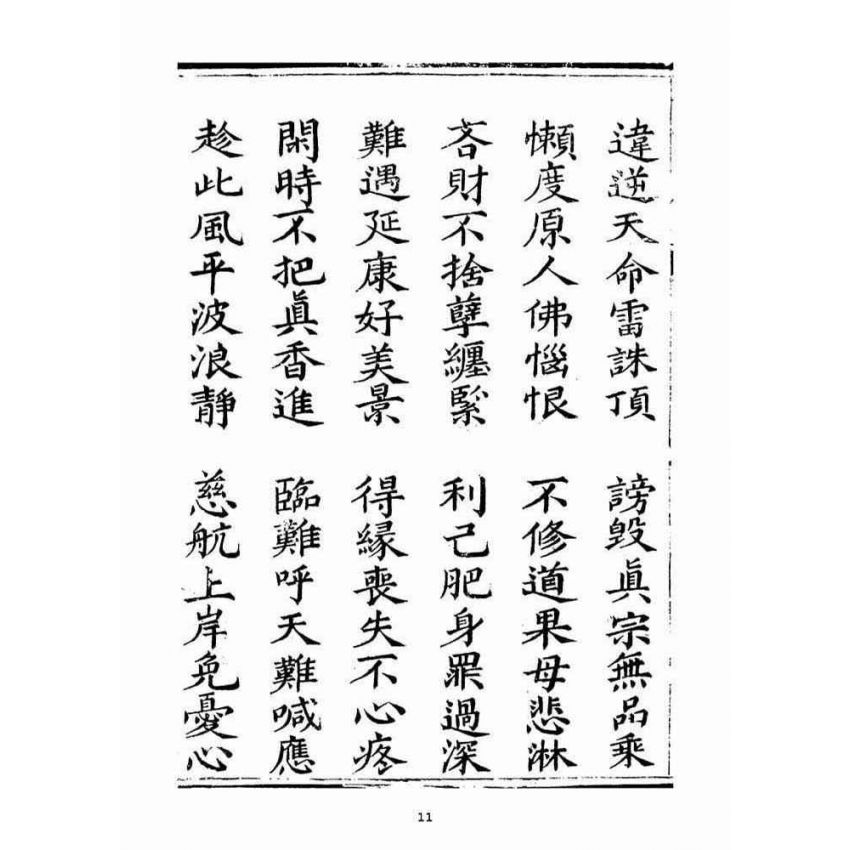 違逆天命雷誅頂 謗毀眞宗無品乘
懶度原人佛惱恨 不修道果母悲淋
吝財不捨孽纏緊 利己肥身罪過深
難遇延康好美景 得緣喪失不心疼
閑時不把眞香進 臨難呼天難喊應
趁此風平波浪靜 慈航上岸免憂心
11